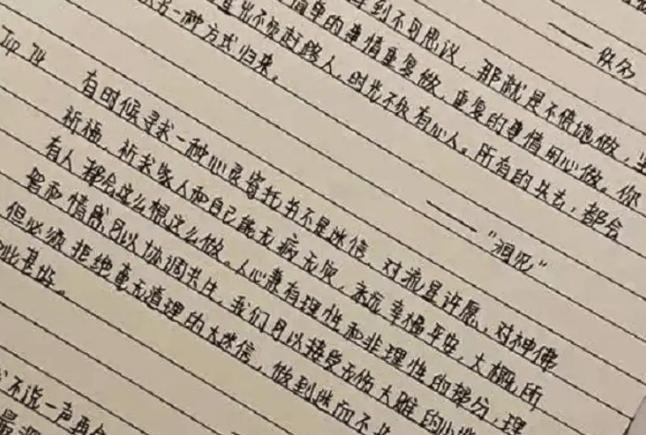 —— 佚名
到不可思议，那就是不停地做，坚
简单的事情重复做，重复的事情用心做。你
不负赶路人，时光不负有心人。所有的失去，都会
以另一种方式归来。
—— “洞见”
Top 74
有时候寻求一种心灵寄托书不是迷信，对流星许愿，对神佛
祈福，祈求家人和自己能无病无灾，永远幸福平安，大概所
有人都会这么想这么做。人心兼有理性和非理性的部分，理
智和情感可以协调共生，我们可以接受无伤大雅的小迷
但必须拒绝毫无道理的大迷信，做到迷而不
如此甚好。
不说一声再